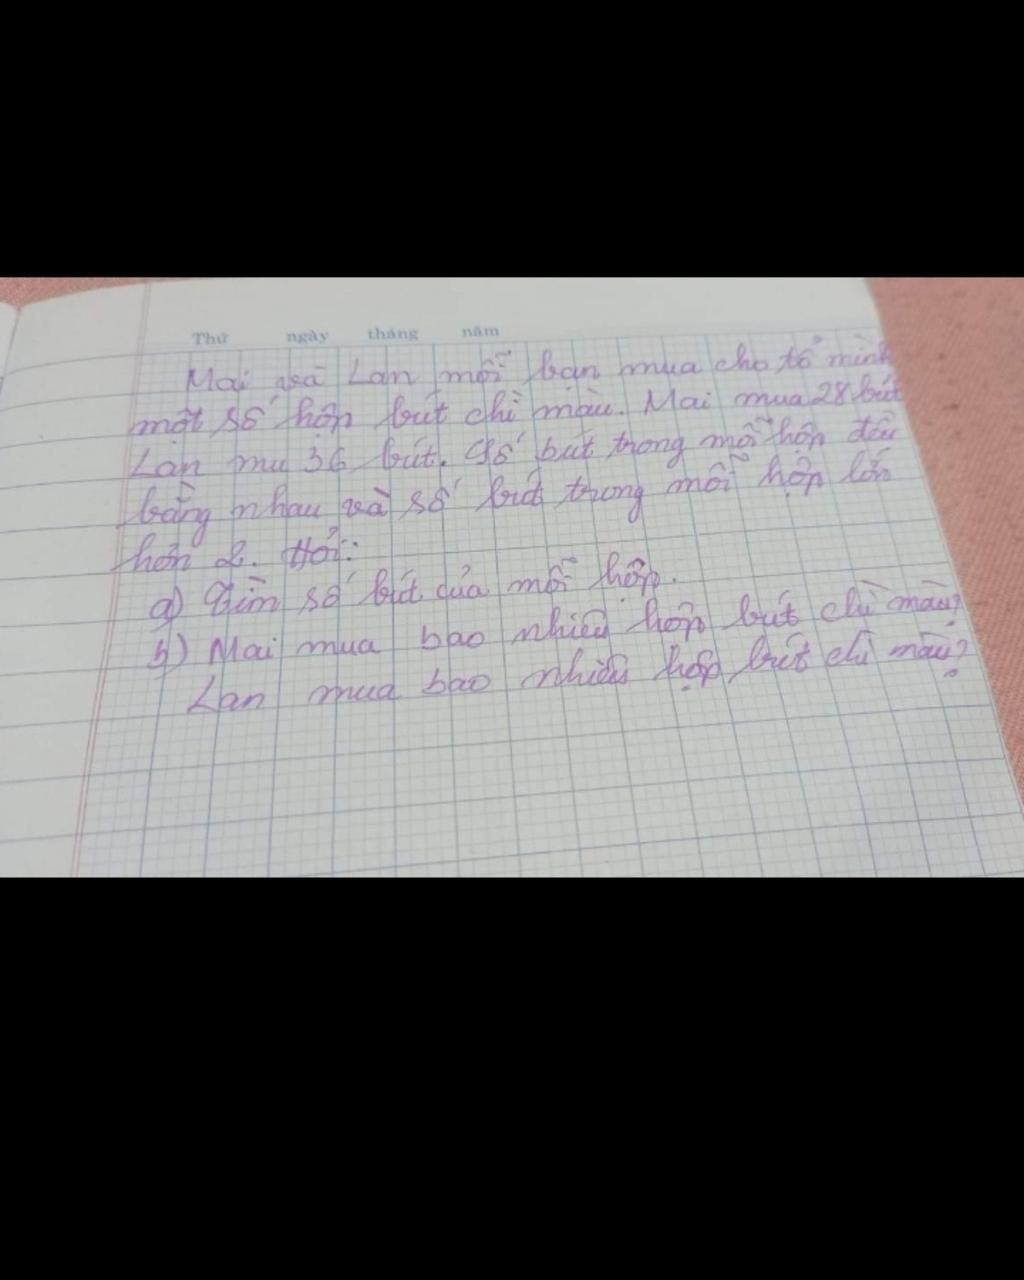 Thứ ngày tháng năm
Mai và Lan mỗi bạn mua cho tổ mình
một số hộp bút chì màu. Mai mua 28 bút
Lan mu 36 bút. Số bút trong mỗi hộp đều
bằng nhau và số bút trung mỗi hộp lớn
hơn 2. Hỏi:
a) Tìm số bút của mỗi hộp.
b) Mai mua bao nhiêu hộp bút chì màu?
Lan mua bao nhiêu hộp bút chì màu?